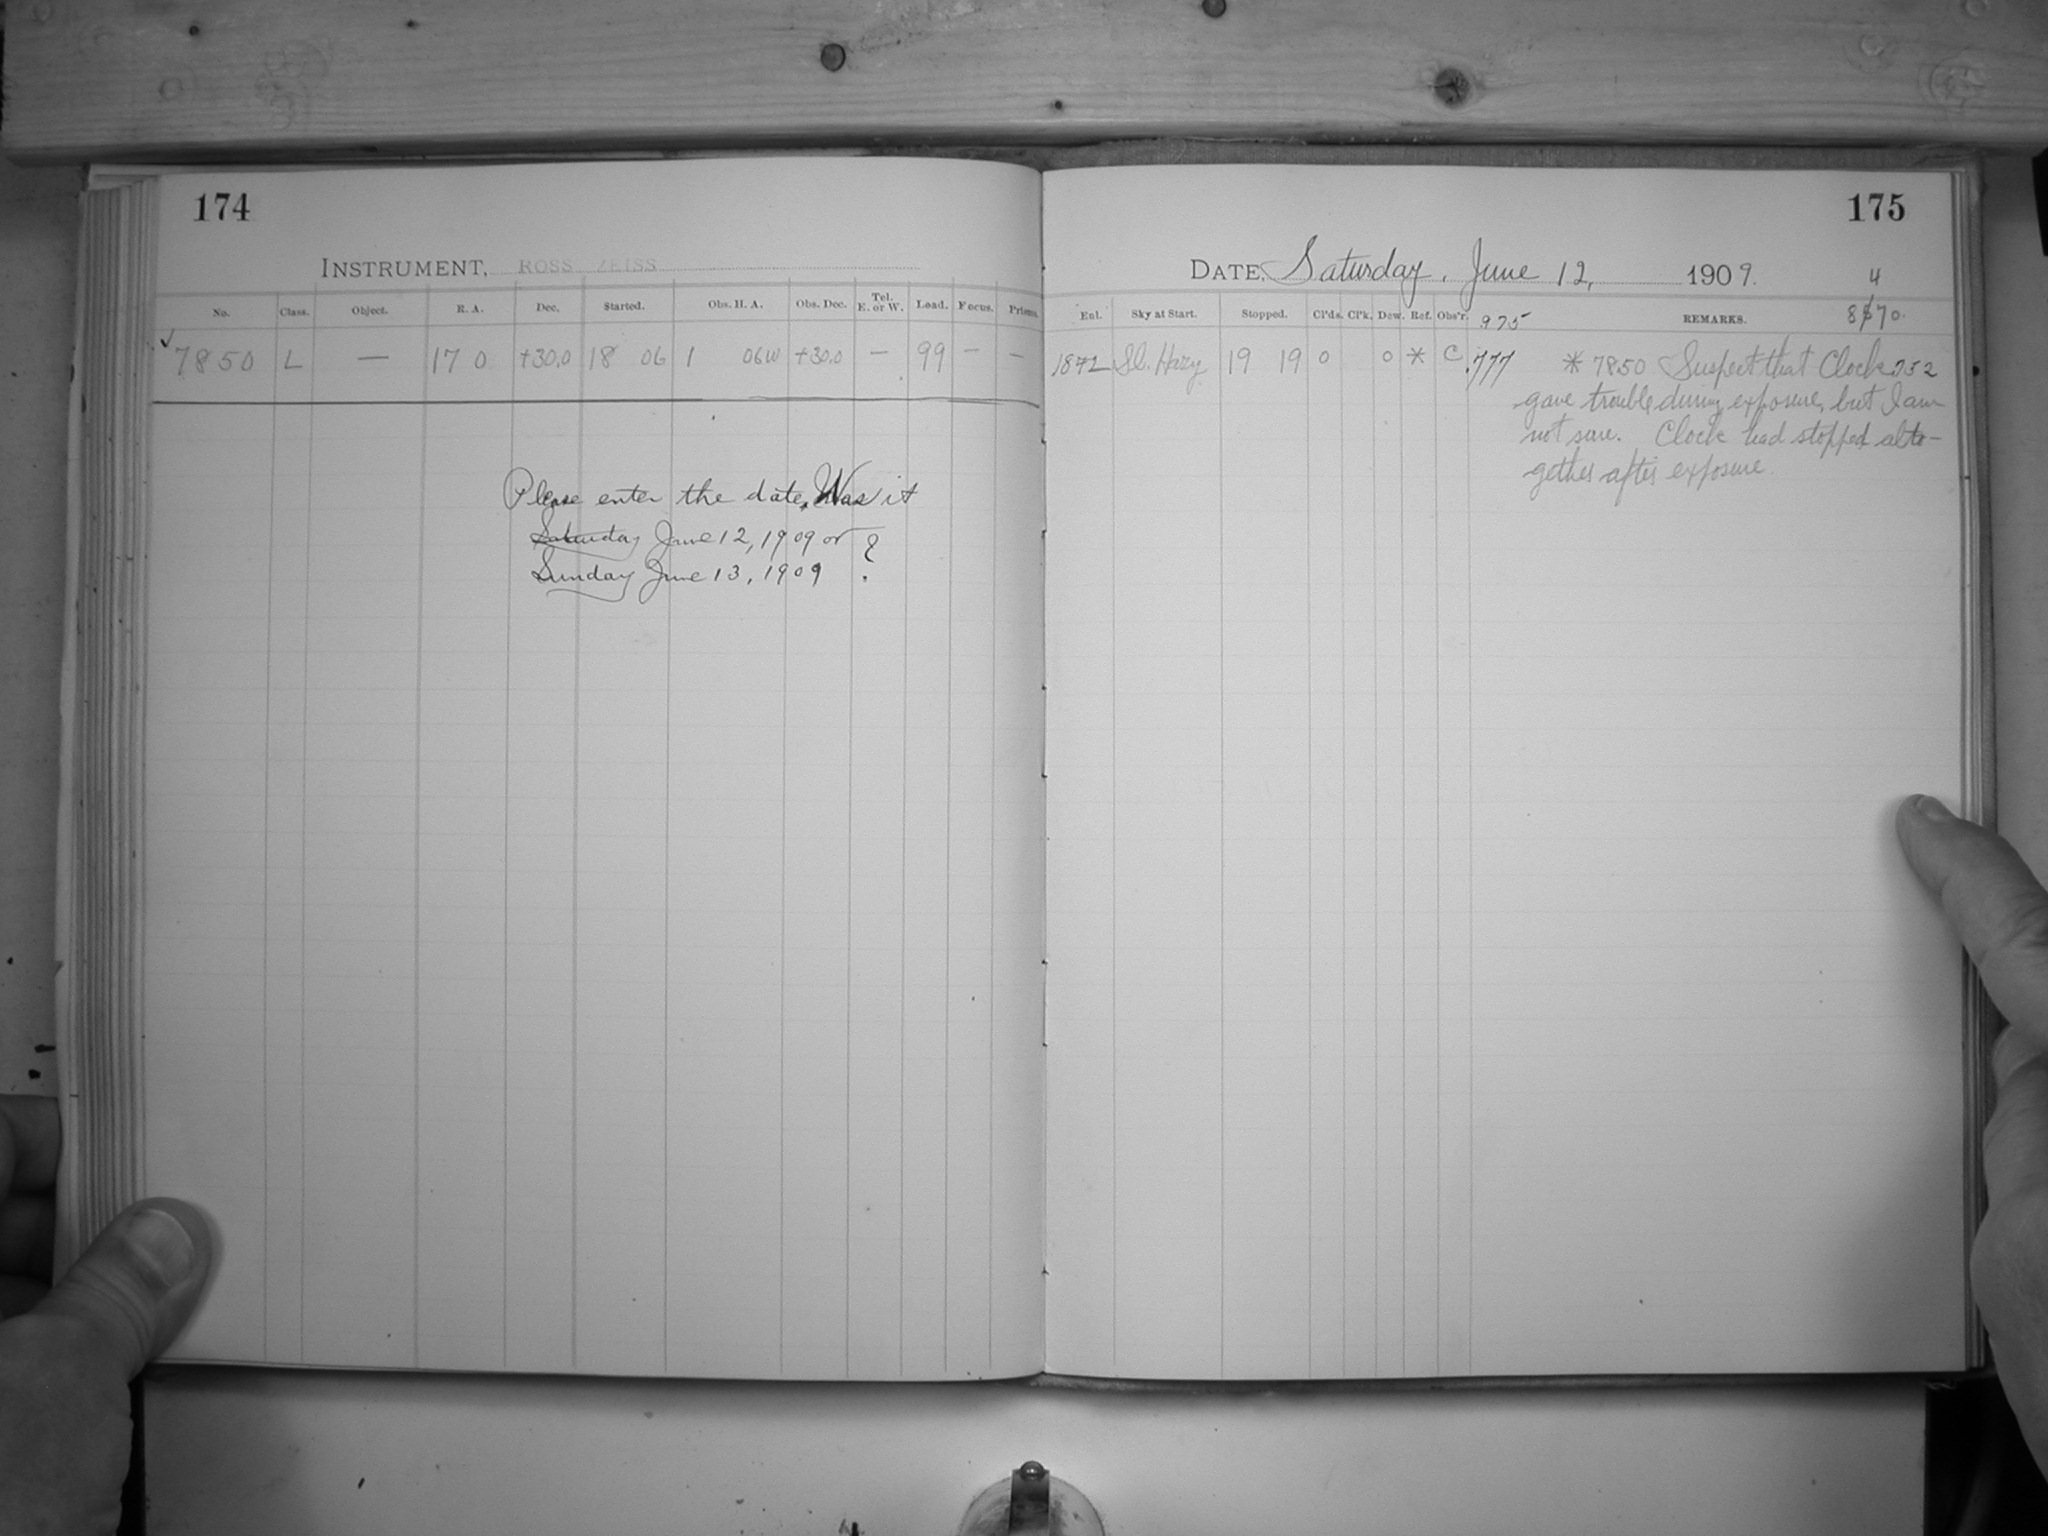 174
INSTRUMENT, ROSS ZEISS
No. Class. Object. R. A. Dec. Started. Obs. H. A. Obs. Dec. Tel. E. or W. Load. Focus. Prisms.
✓ 7850 L — 17 0 +30.0 18 06 1 06W +30.0 — 99 — —
Please enter the date. Was it
Saturday June 12, 1909 or
Sunday June 13, 1909 ?
175
DATE, Saturday, June 12, 1909.
4
8870
Enl. Sky at Start. Stopped. Cl'ds. Cl'k. Dew. Ref. Obs'r. 975 REMARKS.
1872 Sl. Hazy 19 19 0 0 * C .777 * 7850 Suspect that Clock 752
gave trouble during exposure, but I am
not sure. Clock had stopped alto-
gether after exposure.